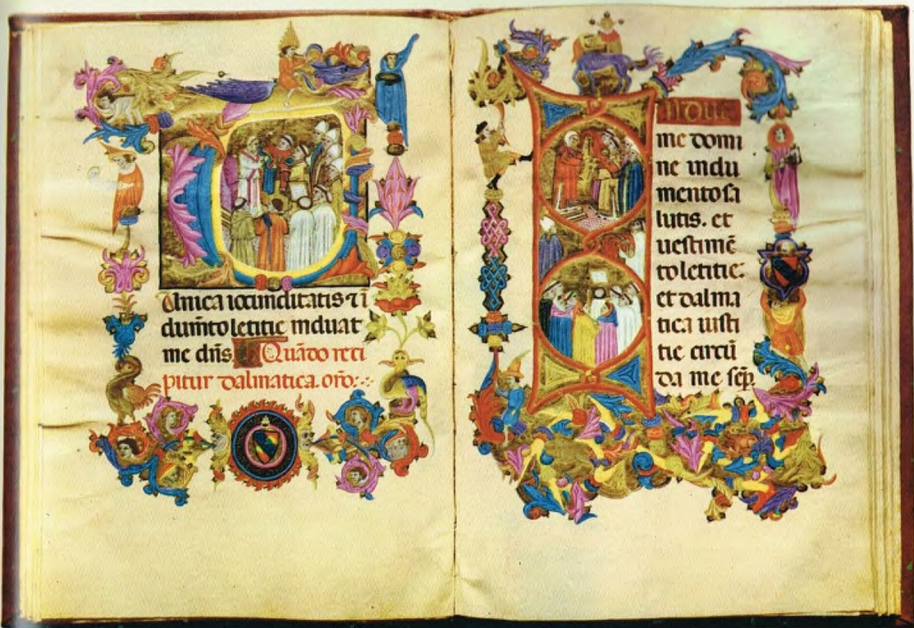 Tunica iocunditatis ⁊ ī
dum̄to letitie induat
me dn̄s. Quādo reci
pitur dalmatica. or̄o:
INDUE
me domi
ne indu
mento sa
lutis. et
uestimē
to letitie:
et dalma
tica iusti
tie circū
da me sēp.